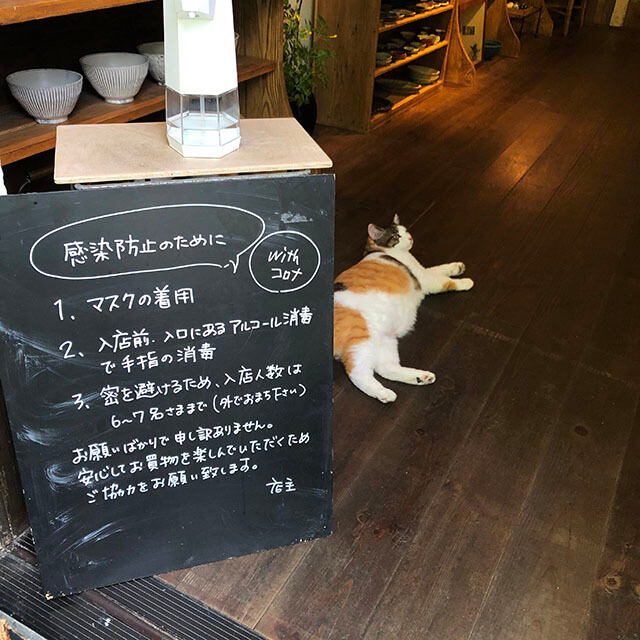 感染防止のために
with
コロナ
1、マスクの着用
2、入店前、入口にあるアルコール消毒
で手指の消毒
3、密を避けるため、入店人数は
6～7名さままで(外でおまち下さい)
お願いばかりで申し訳ありません。
安心してお買物を楽しんでいただくため
ご協力をお願い致します。
店主